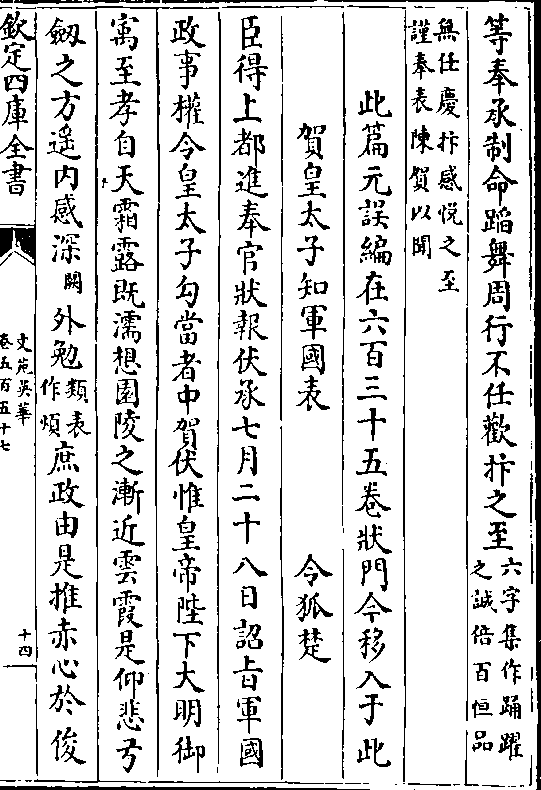 等奉承制命蹈舞周行不任歡抃之至六字集作踊躍之誠倍百恒品
無任慶抃感悦之至
謹奉表陳賀以聞
此篇元誤編在六百三十五卷狀門今移入于此
賀皇太子知軍國表 令狐楚
臣得上都進奉官狀報伏承七月二十八日詔旨軍國
政事權令皇太子勾當者中賀伏惟皇帝陛下大明御
寓至孝自天霜露既濡想園陵之漸近雲霞是仰悲弓
劔之方遥内感深闕外勉類表作煩庶政由是推赤心於俊
欽定四庫全書
文苑英華
卷五百五十七
十四